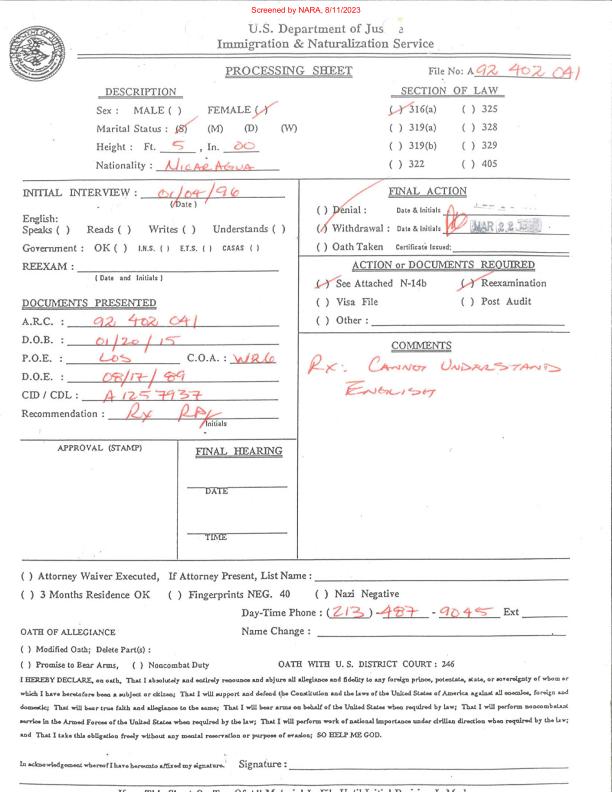 Screened by NARA, 8/11/2023
U.S. Department of Jus a
Immigration & Naturalization Service
PROCESSING SHEET
File No: A 92 402 041
DESCRIPTION
SECTION OF LAW
Sex : MALE ( ) FEMALE (✓)
(✓) 316(a) ( ) 325
Marital Status : (S) (M) (D) (W)
( ) 319(a) ( ) 328
Height : Ft. 5 , In. 00
( ) 319(b) ( ) 329
Nationality : NICARAGUA
( ) 322 ( ) 405
INITIAL INTERVIEW : 01/04/96
(Date)
English:
Speaks ( ) Reads ( ) Writes ( ) Understands ( )
Government : OK ( ) I.N.S. ( ) E.T.S. ( ) CASAS ( )
REEXAM :
( Date and Initials )
FINAL ACTION
( ) Denial : Date & Initials
(✓) Withdrawal : Date & Initials MAR 22
( ) Oath Taken Certificate Issued:
ACTION or DOCUMENTS REQUIRED
(✓) See Attached N-14b (✓) Reexamination
( ) Visa File ( ) Post Audit
( ) Other :
DOCUMENTS PRESENTED
A.R.C. : 92 402 041
D.O.B. : 01/20/15
P.O.E. : LOS C.O.A. : WR6
D.O.E. : 08/17/89
CID / CDL : A 1257937
Recommendation : RX
Initials
COMMENTS
RX: CANNOT UNDERSTAND
ENGLISH
APPROVAL (STAMP)
FINAL HEARING
DATE
TIME
( ) Attorney Waiver Executed, If Attorney Present, List Name :
( ) 3 Months Residence OK ( ) Fingerprints NEG. 40 ( ) Nazi Negative
Day-Time Phone : (213) - 487 - 9045 Ext
OATH OF ALLEGIANCE
Name Change :
( ) Modified Oath; Delete Part(s) :
( ) Promise to Bear Arms, ( ) Noncombat Duty OATH WITH U.S. DISTRICT COURT : 246
I HEREBY DECLARE, on oath, That I absolutely and entirely renounce and abjure all allegiance and fidelity to any foreign prince, potentate, state, or sovereignty of whom or
which I have heretofore been a subject or citizen; That I will support and defend the Constitution and the laws of the United States of America against all enemies, foreign and
domestic; That I will bear true faith and allegiance to the same; That I will bear arms on behalf of the United States when required by law; That I will perform noncombatant
service in the Armed Forces of the United States when required by the law; That I will perform work of national importance under civilian direction when required by the law;
and That I take this obligation freely without any mental reservation or purpose of evasion; SO HELP ME GOD.
In acknowledgement whereof I have hereunto affixed my signature. Signature :